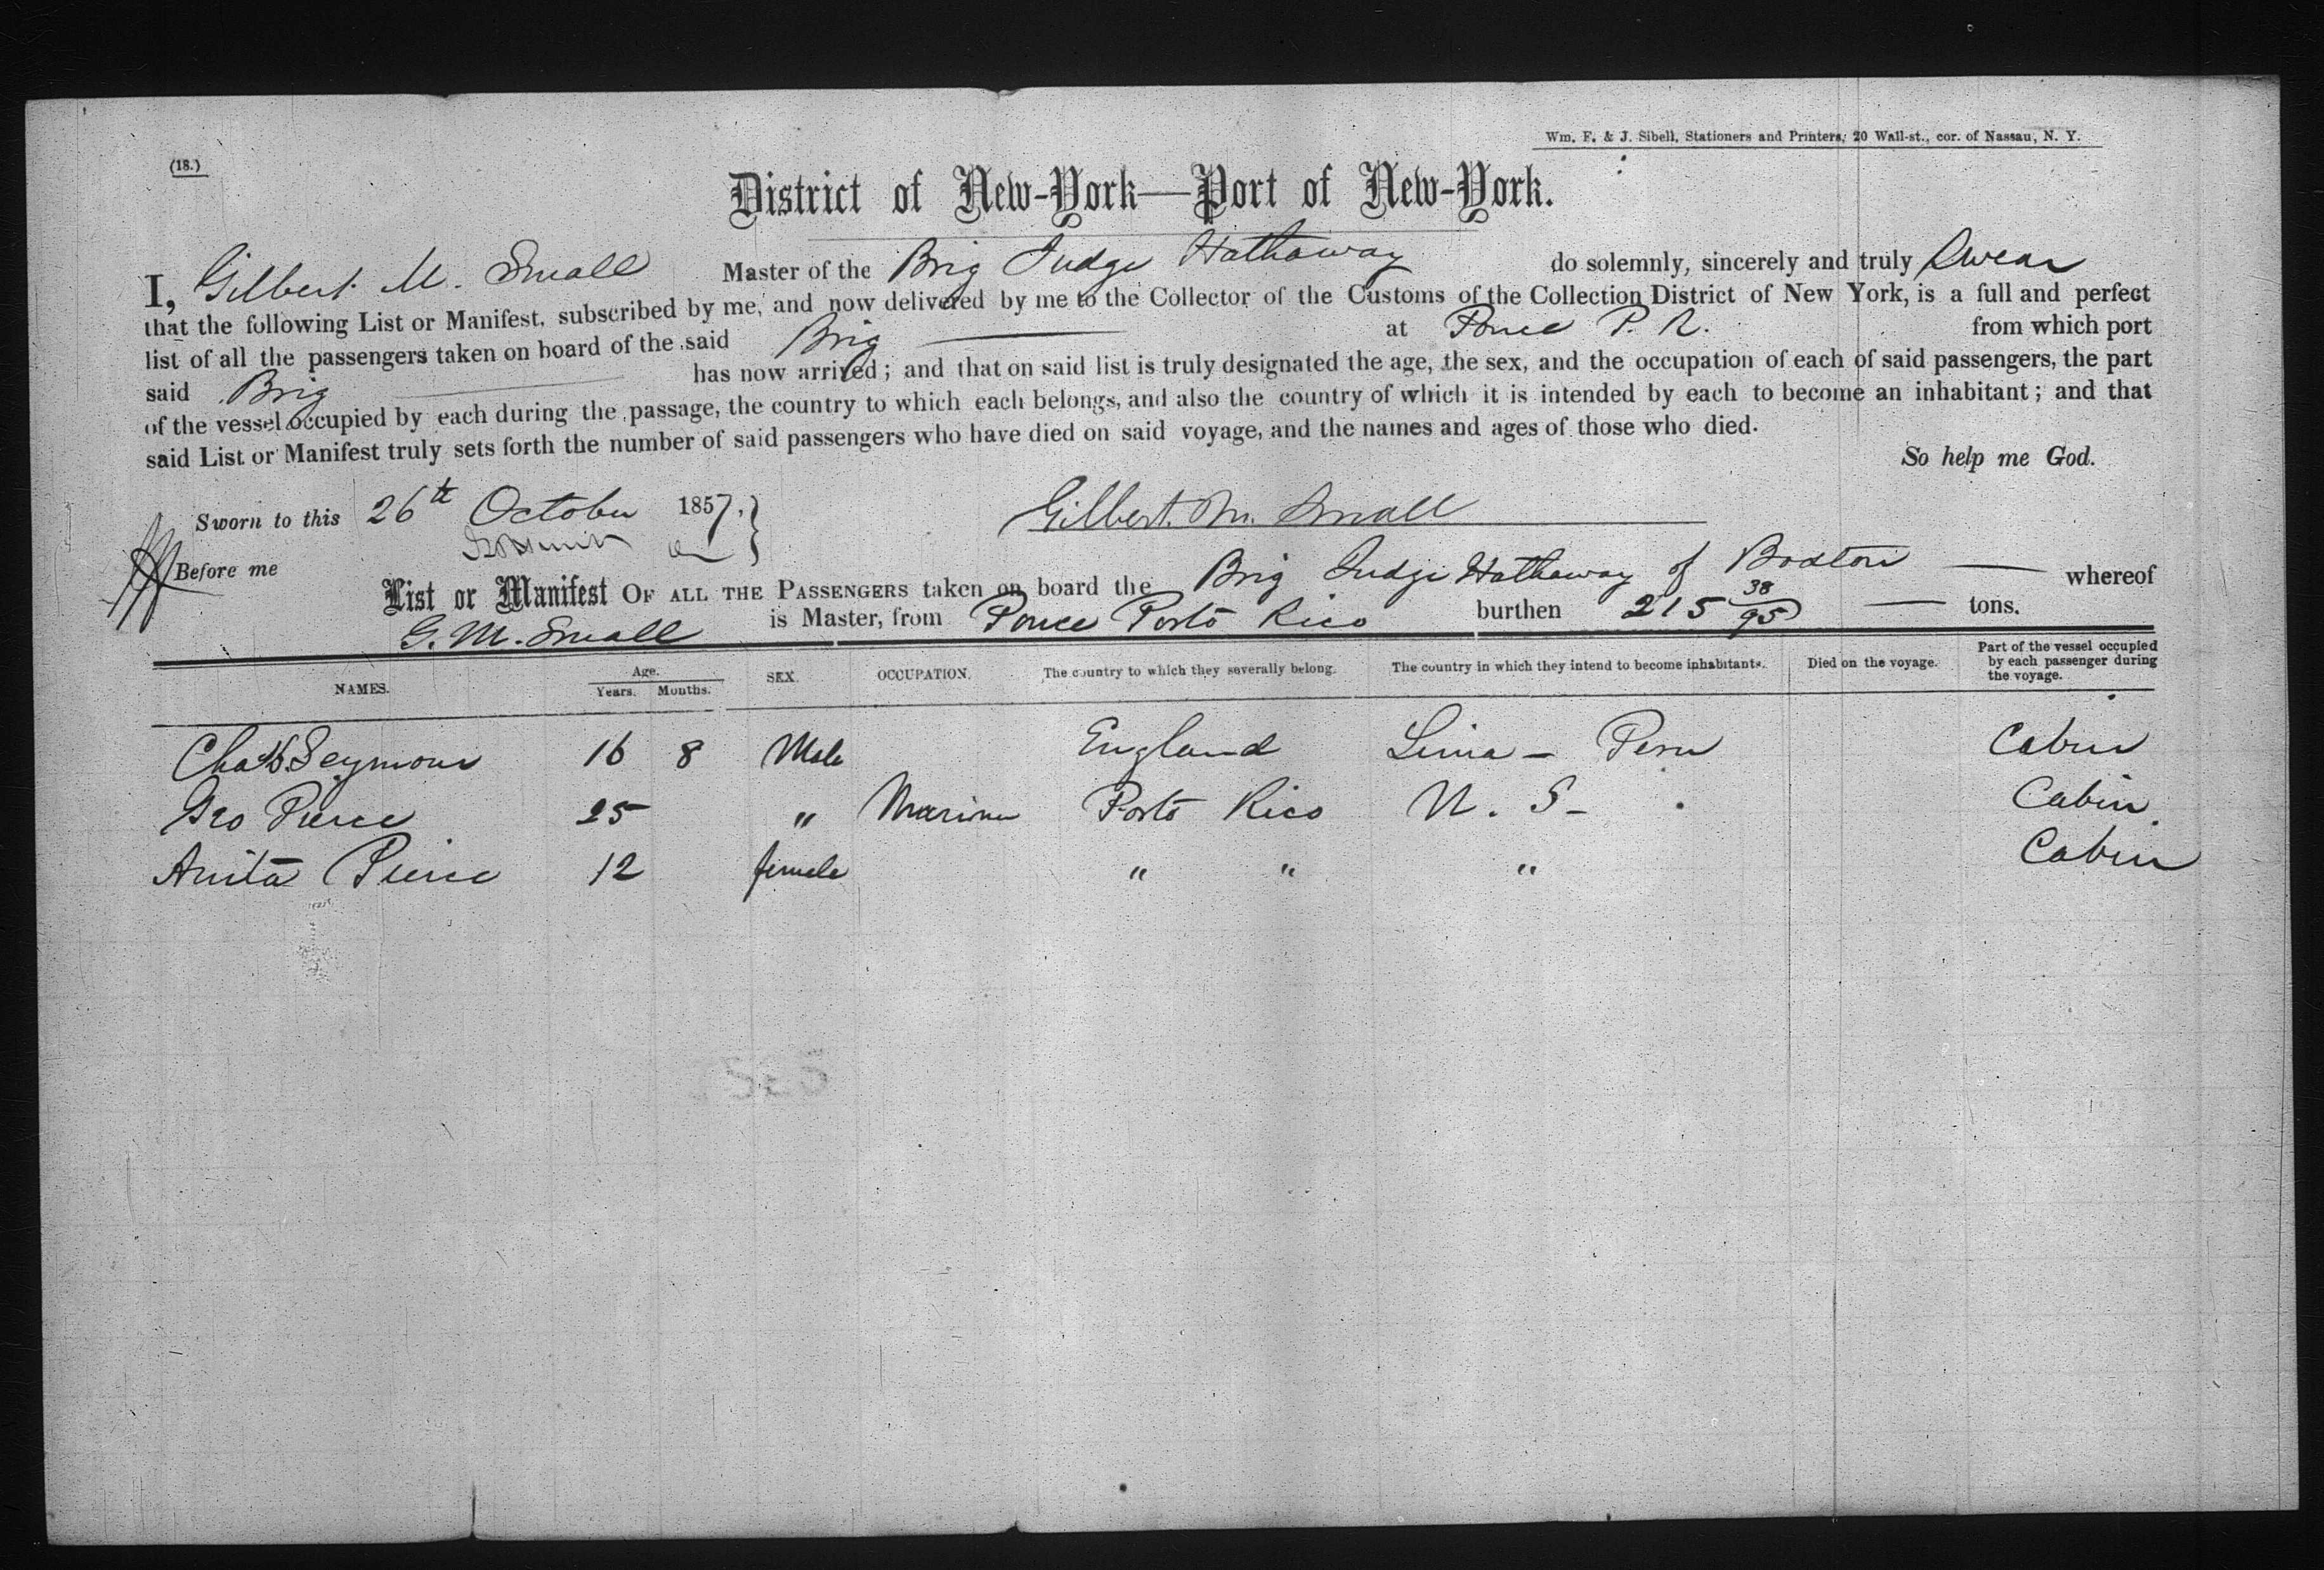 Wm. F. & J. Sibell, Stationers and Printers, 20 Wall-st., cor. of Nassau, N. Y.
(18.)
District of New-York—Port of New-York.
I, Gilbert M. Small Master of the Brig Judge Hathaway do solemnly, sincerely and truly Swear
that the following List or Manifest, subscribed by me, and now delivered by me to the Collector of the Customs of the Collection District of New York, is a full and perfect
list of all the passengers taken on board of the said Brig at Ponce P. R. from which port
said Brig has now arrived; and that on said list is truly designated the age, the sex, and the occupation of each of said passengers, the part
of the vessel occupied by each during the passage, the country to which each belongs, and also the country of which it is intended by each to become an inhabitant; and that
said List or Manifest truly sets forth the number of said passengers who have died on said voyage, and the names and ages of those who died.
So help me God.
Sworn to this 26th October 1857, Gilbert M. Small
Before me
List or Manifest OF ALL THE PASSENGERS taken on board the Brig Judge Hathaway of Boston whereof
G. M. Small is Master, from Ponce Porto Rico burthen 215 38/95 tons.
NAMES. Age. Years. Months. SEX. OCCUPATION. The country to which they severally belong. The country in which they intend to become inhabitants. Died on the voyage. Part of the vessel occupied by each passenger during the voyage.
Seymour 16 8 Male England Lima - Peru Cabin
Geo Pierce 25 " Mariner Porto Rico U. S - Cabin
Anita Pierce 12 female " " " Cabin